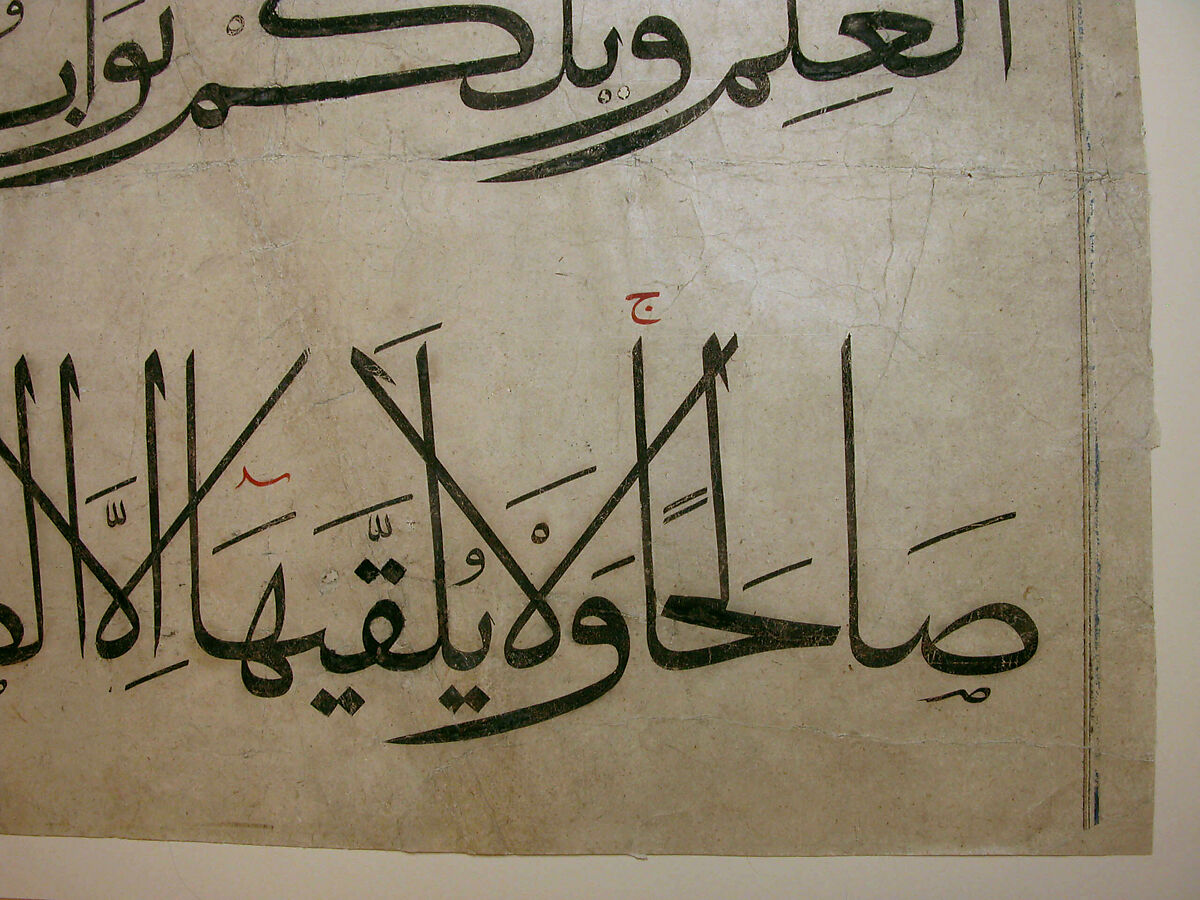 الْعِلْمِ وَيْلَكُمْ ثَوَابُ
صَالِحًا ۚ وَلَا يُلَقَّيهَا إِلَّا